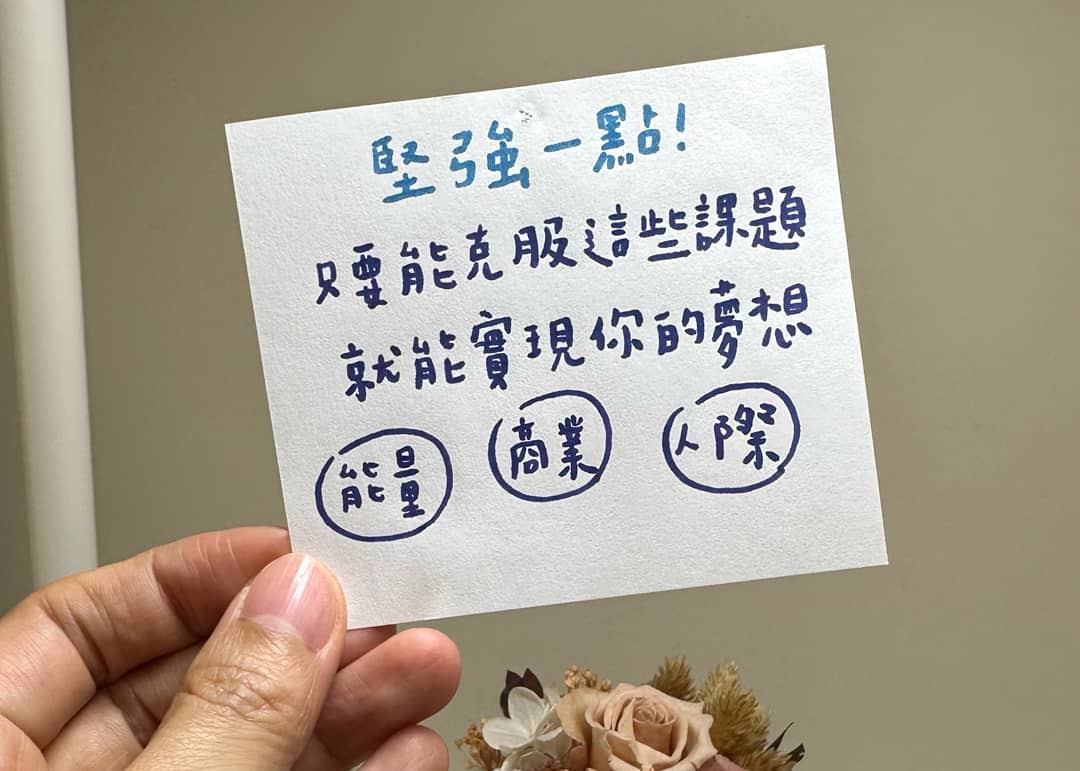 堅強一點!
只要能克服這些課題
就能實現你的夢想
能量 商業 人際